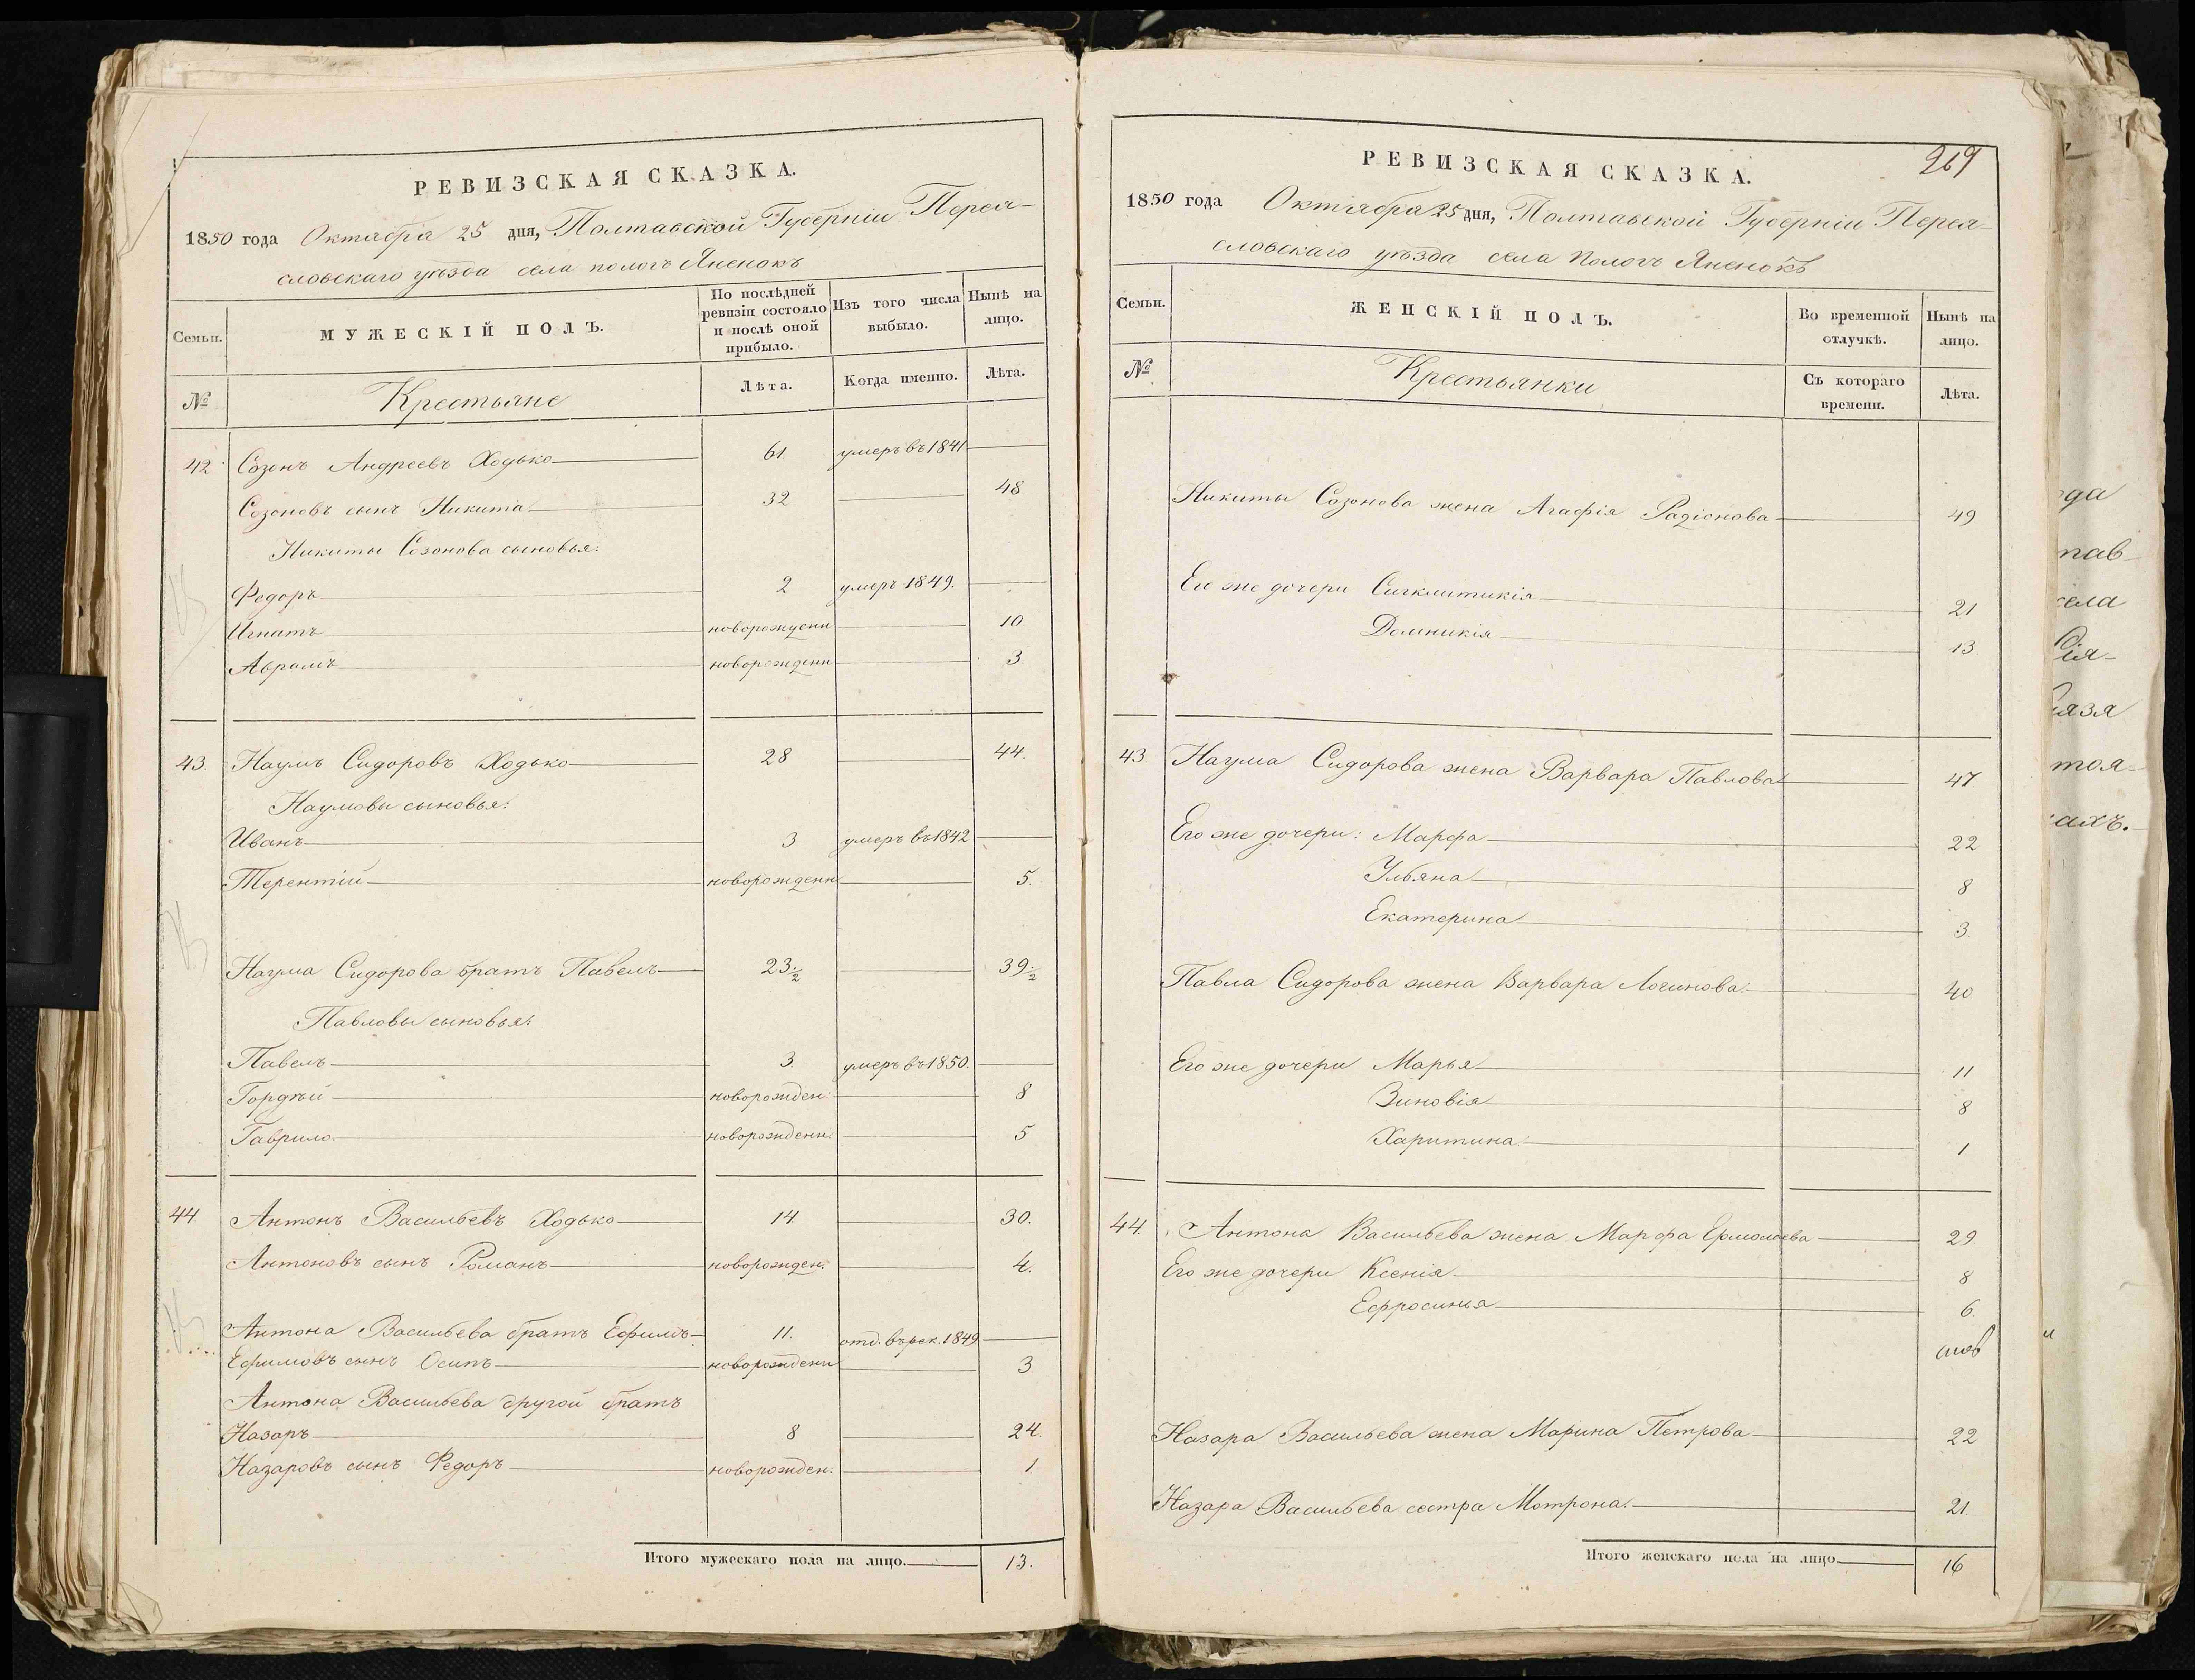 РЕВИЗСКАЯ СКАЗКА.
1850 года Октября 25 дня, Полтавской Губерніи Перея-
словскаго уѣзда села пологъ Яненокъ
Семьи.
МУЖЕСКІЙ ПОЛЪ.
По послѣдней ревизіи состояло и послѣ оной прибыло.
Изъ того числа выбыло.
Нынѣ на лицо.
№
Крестьяне
Лѣта.
Когда именно.
Лѣта.
42 Созонъ Андреевъ Ходько 61 умеръ въ 1841
Созоновъ сынъ Никита 32 48
Никиты Созонова сыновья:
Федоръ 2 умеръ 1849.
Игнатъ новорожденн 10
Аврамъ новорожденн 3.
43. Наумъ Сидоровъ Ходько 28 44.
Наумовы сыновья:
Иванъ 3 умеръ въ 1842
Терентій новорожденн 5.
Наума Сидорова братъ Павелъ 23 1/2 39 1/2
Павловы сыновья:
Павелъ 3. умеръ въ 1850.
Гордѣй новорожден: 8
Гаврило новорожденн. 5
44. Антонъ Васильевъ Ходько 14 30.
Антоновъ сынъ Романъ новорожден. 4.
Антона Васильева братъ Ефимъ 11. отд. въ рек. 1849
Ефимовъ сынъ Осипъ новорожденн 3
Антона Васильева другой братъ
Назаръ 8 24.
Назаровъ сынъ Федоръ новорожден. 1.
Итого мужескаго пола на лицо. 13.
269
РЕВИЗСКАЯ СКАЗКА.
1850 года Октября 25 дня, Полтавской Губерніи Перея-
словскаго уѣзда села Пологъ Яненокъ
Семьи.
ЖЕНСКІЙ ПОЛЪ.
Во временной отлучкѣ.
Нынѣ на лицо.
№
Крестьянки
Съ котораго времени.
Лѣта.
Никиты Созонова жена Агафія Радіонова 49
Его же дочери Сигклитикія 21
Домникія 13
43 Наума Сидорова жена Варвара Павлова 47
Его же дочери: Марфа 22
Ульяна 8
Екатерина 3.
Павла Сидорова жена Варвара Логинова. 40
Его же дочери Марья 11
Зиновія 8
Харитина 1
44. Антона Васильева жена Марфа Ермолаева 29
Его же дочери Ксенія 8
Ефросинья 6
Назара Васильева жена Марина Петрова 22
Назара Васильева сестра Мотрона. 21.
Итого женскаго пола на лицо 16